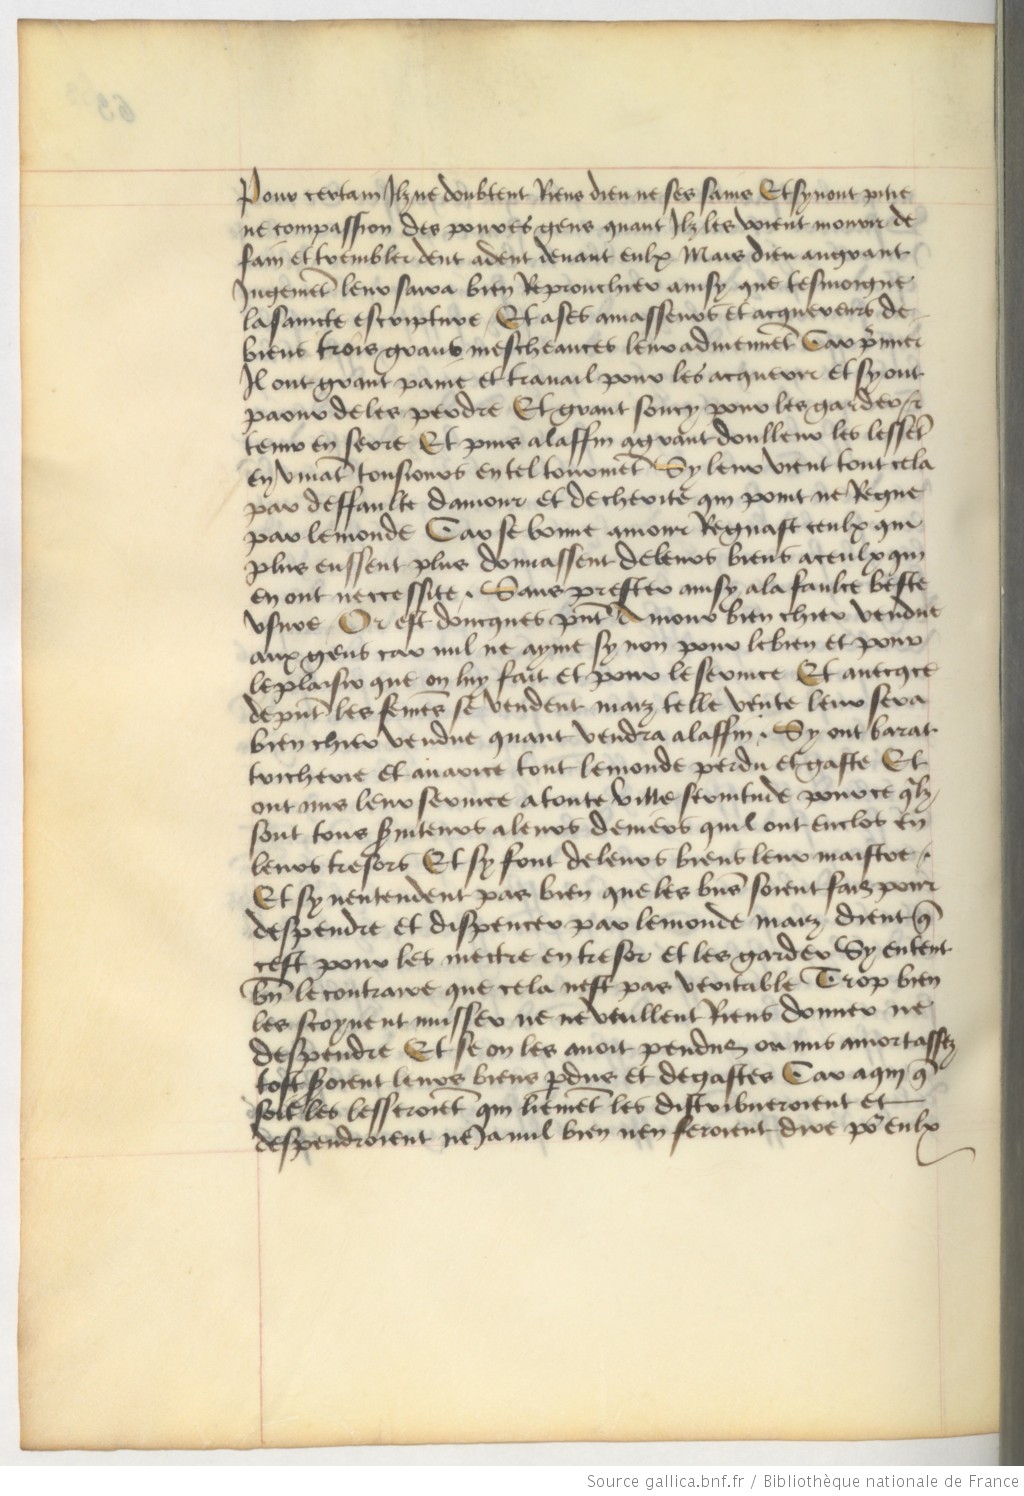 Pour certain Ilz ne doubtent Riens dieu ne ses sains Et sy nont pitie
ne compassion des pouures gens quant Ilz les voient mourir de
fain et trembler dent a dent deuant eulx Mais dieu au grant
Jugemēt leur sara bien Reprouchier ainsy que tesmoigne
la saincte escripture Et a ses amasseurs et acquereurs de
biens trois grans mescheances leur aduiennēt Car p̄mier
Il ont grant paine et trauail pour les acquerir et sy ont
paour de les perdre Et grant soucy pour les garder
tenir en serre Et puis a la ffin a grant doulleur les lessēt
En viuāt tousiours en tel tourmēt Sy leur vient tout cela
par deffaulte damour et de cherite qui point ne Regne
par le monde Car se bonne amour Regnast ceulx qui
plus eussent plus donnassent de leurs biens a ceulx qui
en ont neccessite . Sans prester ainsy a la faulce beste
vsure Or est doncques p̄nt Amour bien chier vendue
aux gens car nul ne ayme sy non pour le bien et pour
le plaisir que on luy fait et pour le seruice Et auecqce
de p̄nt les femēs se vendent maiz telle vente leur sera
bien chier vendue quant vendra a la ffin . Sy ont barat
tricherie et auarice tout le monde perdu et gaste Et
ont mis leur seruice a toute ville seruitude pource q̄lz
sont tous s̄uiteurs a leurs deniers quil ont enclos en
leurs tresors Et sy font de leurs biens leur maistre .
Et sy nentendent pas bien que les biēs soient faiz pour
despendre et dispencer par le monde maiz dient q̄
cest pour les mectre en tresor et les garder Sy entent
bn̄ le contraire que cela nest pas veritable Trop bien
les scoyuent musser ne ne veullent Riens donner ne
despendre Et se on les auoit penduz ou mis a mort assez
tost s̄oient leurs biens p̄dus et degastes Car a qui q̄
soit les lesseroiēt qui liemēt les distribueroient et
despendroient ne Ja nul bien nen feroient dire po᷑ eulx